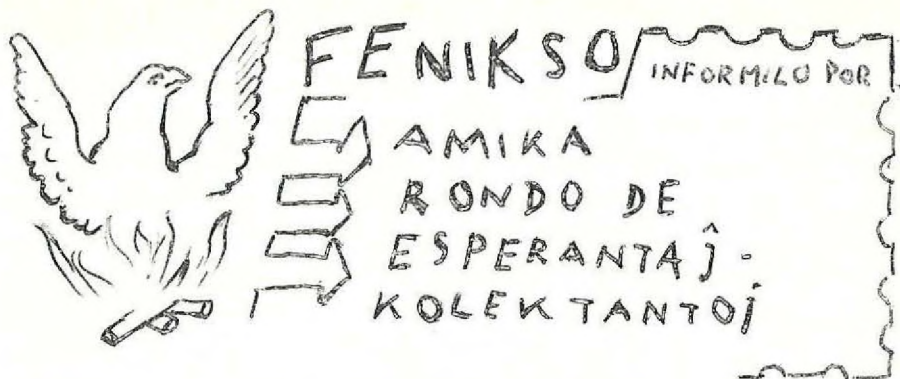 FENIKSO
INFORMILO POR
AMIKA
RONDO DE
ESPERANTAĴ-
KOLEKTANTOJ